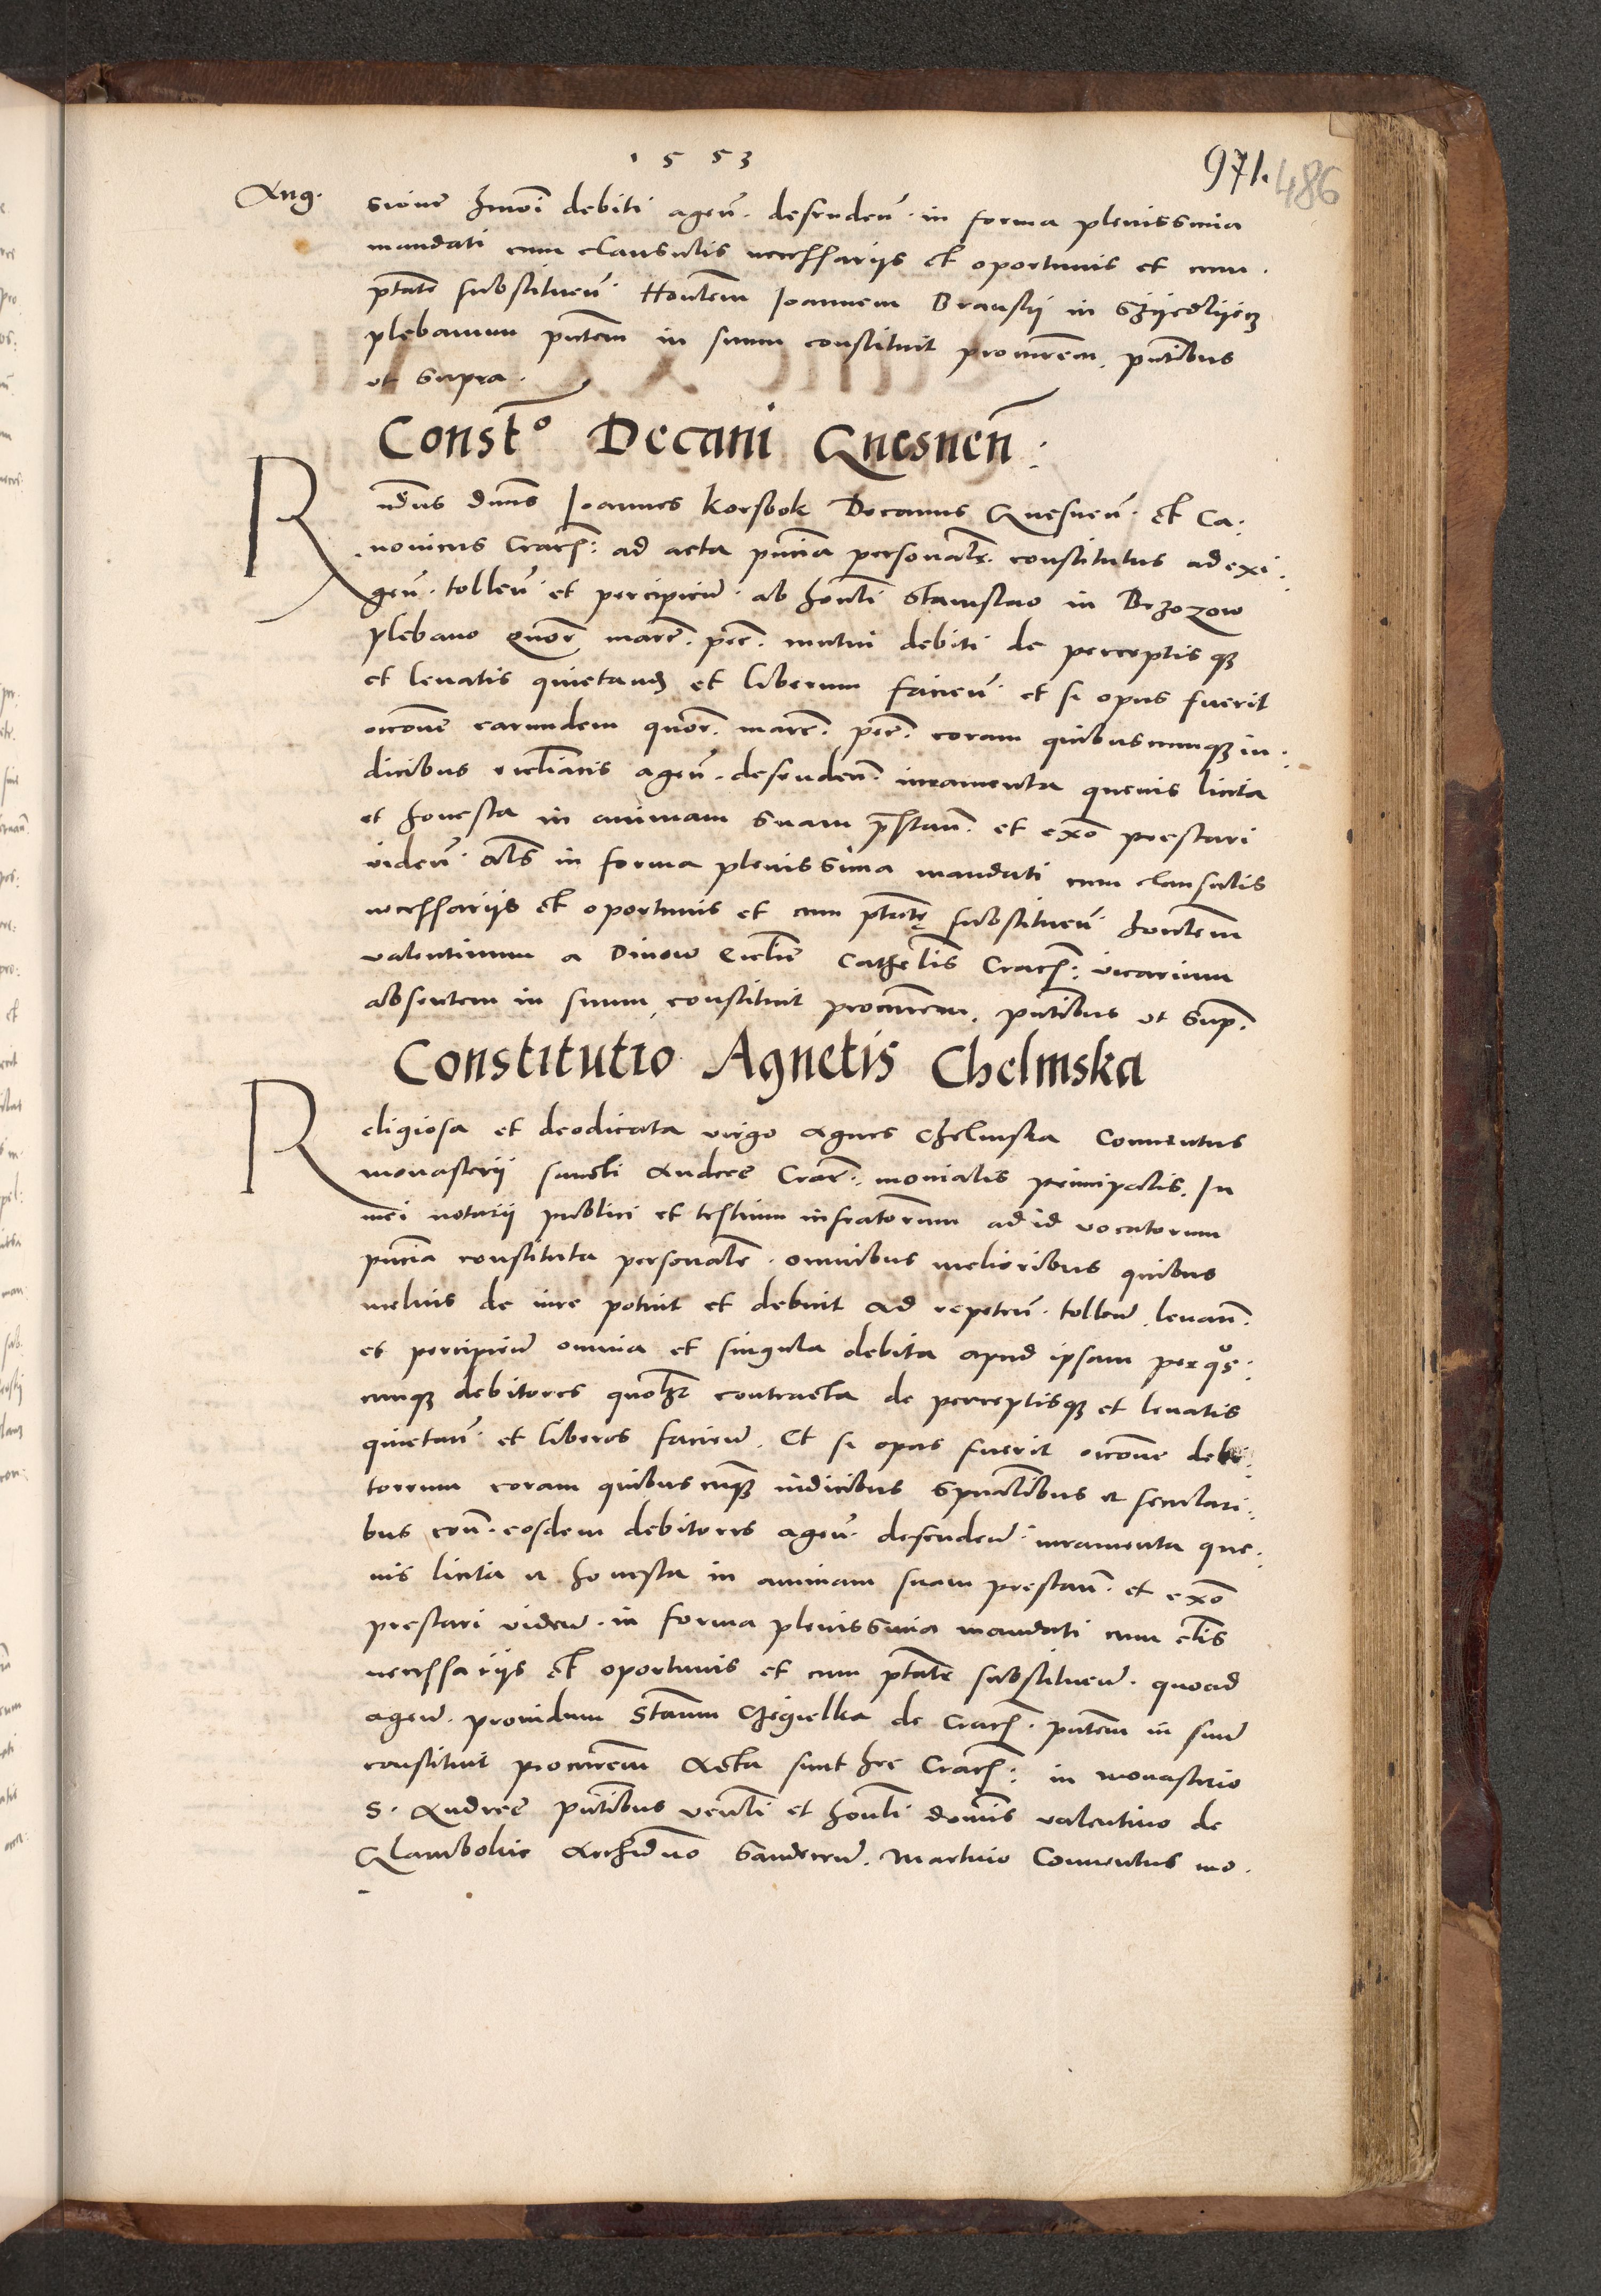 1553
971. 486
Aug.
sione hmoi debiti agen. defenden. in forma plenissima
mandati cum clausulis necessariis et oportunis et cum
ptate substituen. Honlem Joannem Branskj in
plebanum pntem in suum constituit procurem. pntibus
ut supra.
Consto Decani Gnesnen:
Rndus dnus Joannes Korsbok Decanus Gnesnen. et Ca:
nonicus Crac: ad acta pncia personalr. constitutus ad exi:
gen. tollen. et percipien. ab honli Stanislao in Brzozow
plebano quor marc. pec. mutui debiti de perceptisque
et levatis quietand et liberum facien. et si opus fuerit
occone earundem quor. marc. pec. coram quibuscunque iu:
dicibus eccliacis agen. defenden. iuramenta quevis licita
et honesta in animam suam prestan. et exo prestari
viden. als in forma plenissima mandati cum clausulis
necessariis et oportunis et cum ptate substituen. honlem
valentinum a Dinow Ecclie Cathelis Crac: vicarium
absentem in suum constituit procurem. pntibus ut sup.
Constitutio Agnetis Chelmska
Religiosa et deodicata virgo Agnes Chelmska Conventus
monasterii sancti Andree Crac: monialis principalis. In
mei notarii publici et testium infrascriptorum ad id vocatorum
pncia constituta personalr. omnibus melioribus quibus
melius de iure potuit et debuit ad repeten. tollen. levan.
et percipien omnia et singula debita apud ipsam per quos:
cunque debitores quolibet contracta de perceptisque et levatis
quietan. et liberos facien. Et si opus fuerit occone debi:
torum coram quibuscunque iudicibus spualibus et seculari:
bus con. eosdem debitores agen. defenden. iuramenta que:
vis licita et honesta in animam suam prestan. et exo
prestari viden. in forma plenissima mandati cum clis
necessariis et oportunis et cum ptate substituen. quoad
agen. providum Stanum Czegielka de Crac. pntem in suum
constituit procurem Acta sunt hec Crac: in monasterio
S. Andree pntibus venli et honli dominis valentino de
Glambokie Archidno Sandecen. Martino Conventus mo.